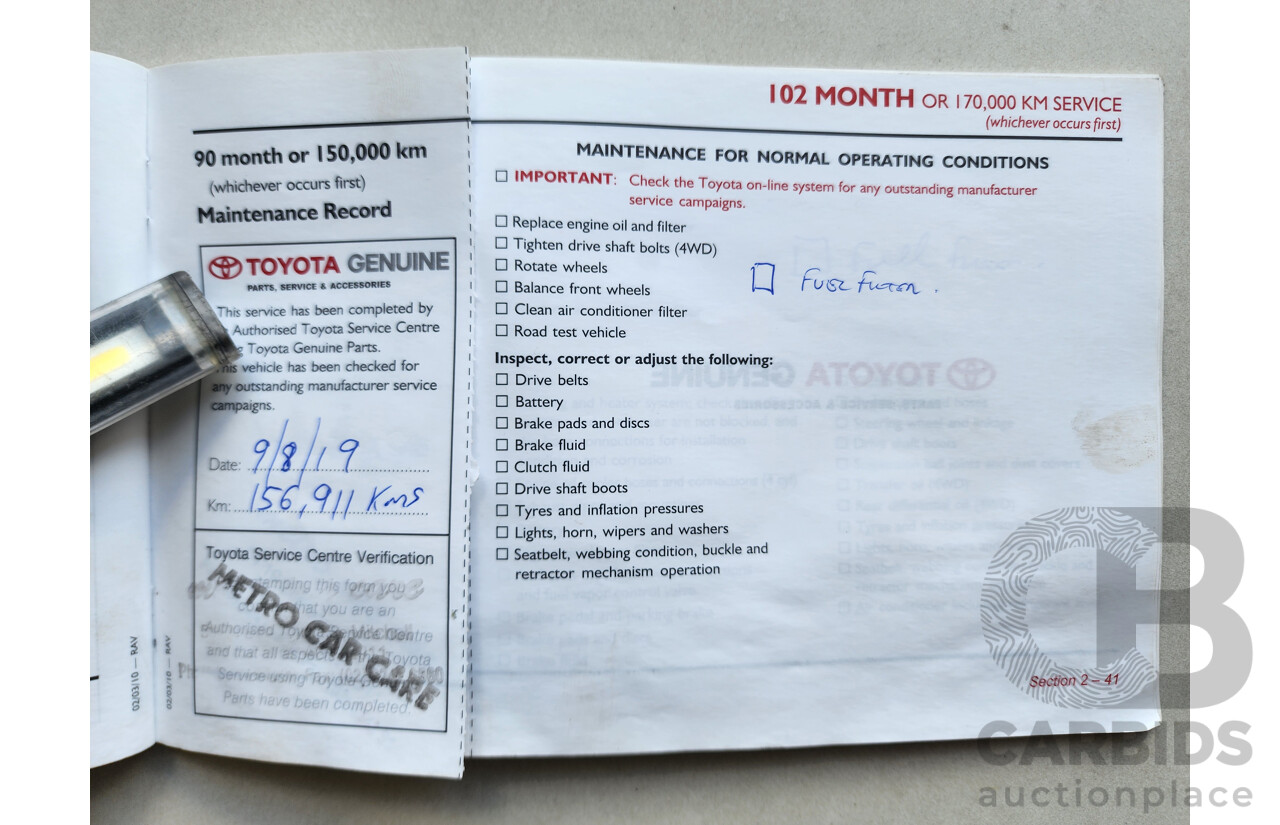 90 month or 150,000 km
(whichever occurs first)
Maintenance Record
TOYOTA GENUINE
PARTS, SERVICE & ACCESSORIES
This service has been completed by
Authorised Toyota Service Centre
Toyota Genuine Parts.
vehicle has been checked for
any outstanding manufacturer service
campaigns.
Date: 9/8/19
Km: 156,911 Kms
Toyota Service Centre Verification
stamping this form you
that you are an
Authorised Toyota Service Centre
and that all aspects of the Toyota
Service using Toyota
Parts have been completed.
METRO CAR CARE
02/03/10 — RAV
02/03/10 — RAV
102 MONTH OR 170,000 KM SERVICE
(whichever occurs first)
MAINTENANCE FOR NORMAL OPERATING CONDITIONS
IMPORTANT: Check the Toyota on-line system for any outstanding manufacturer
service campaigns.
Replace engine oil and filter
Tighten drive shaft bolts (4WD)
Rotate wheels
Balance front wheels
Clean air conditioner filter
Road test vehicle
FUEL FILTER.
Inspect, correct or adjust the following:
Drive belts
Battery
Brake pads and discs
Brake fluid
Clutch fluid
Drive shaft boots
Tyres and inflation pressures
Lights, horn, wipers and washers
Seatbelt, webbing condition, buckle and
retractor mechanism operation
Section 2 – 41
CB
CARBIDS
auctionplace